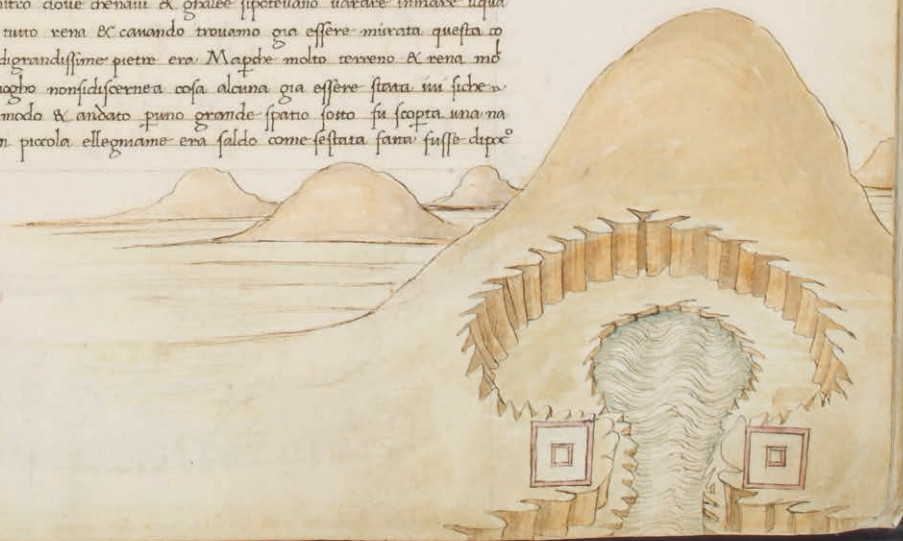 dove chenavi & ghalee sipotevano varare inmare
tutto rena & cavando trovamo gia essere murata questa co
digrandissime pietre era Mapche molto terreno & rena mo
uogho nonsidiscernea cosa alcuna gia essere stata ivi siche
modo & andato puno grande spatio sotto fu scopta una na
piccola ellegniame era saldo come sestata fatta fusse dipoco